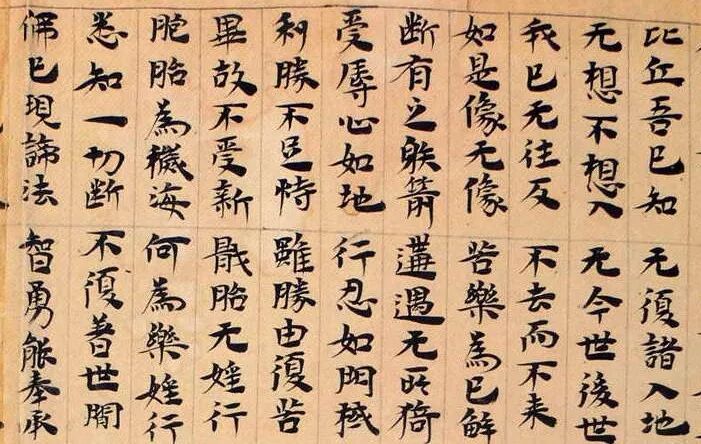 比丘吾已知 无復諸入地
无想不想入 无今世後世
我已无往反 不去而不来
如是像无像 苦樂為已解
断有之躾箭 遘遇无所猗
受辱心如地 行忍如門棫
利勝不足恃 雖勝由復苦
畢故不受新 猒胎无婬行
胞胎為穢海 何為樂婬行
悉知一切断 不復著世間
佛已現諦法 智勇能奉承